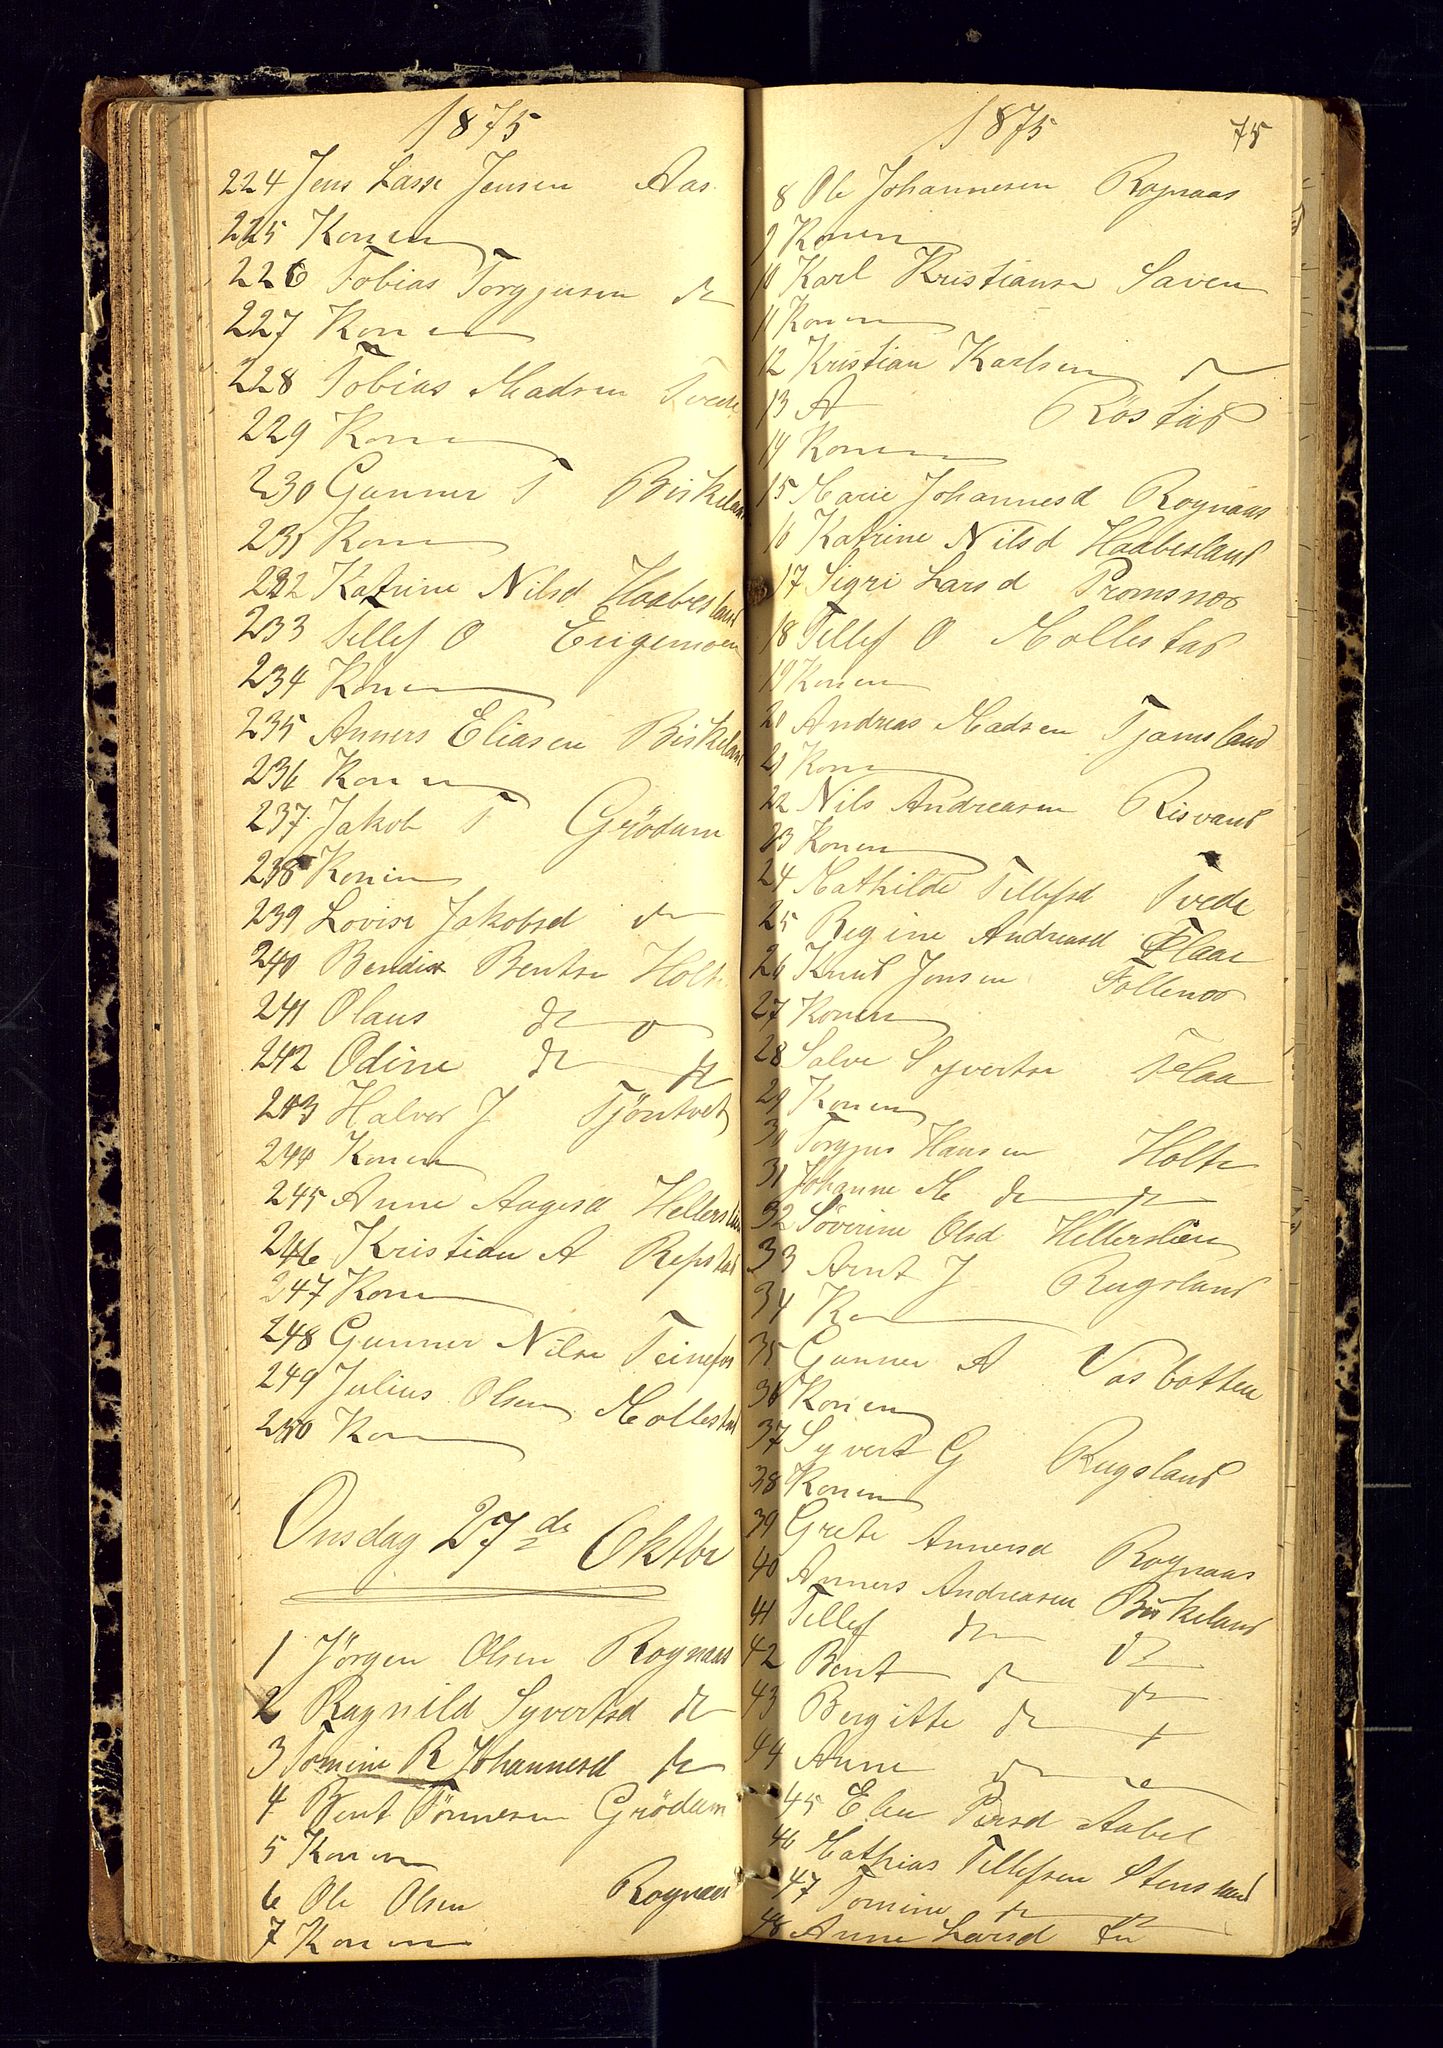 1875
224 Jens Lasse Jensen Aas
225 Konen
226 Tobias Torgjusen do
227 Konen
228 Tobias Madsen Tvede
229 Konen
230 Gunner T Birkeland
231 Konen
232 Katrine Nilsd Haabesland
233 Tellef O Engemoen
234 Konen
235 Anners Eliasen Birkeland
236 Konen
237 Jakob T Grödum
238 Konen
239 Lovise Jakobsd do
240 Bendix Bentse Holte
241 Olaus do do
242 Odine do do
243 Halvor J Tjöntvet
244 Konen
245 Anne Aagesd Hellerslien
246 Kristian A Repstad
247 Konen
248 Gunner Nilse Teinefos
249 Julius Olsen Mollestad
250 Konen
Onsdag 27de Oktbr
1 Jörgen Olsen Rognaas
2 Ragnild Syvertsd do
3 Tomine R Johannesd do
4 Bent Tönnesen Grödum
5 Konen
6 Ole Olsen Rognaas
7 Konen
1875 75
8 Ole Johannesen Rognaas
9 Konen
10 Karl Kristianse Saven
11 Konen
12 Kristian Karlsen do
13 A Röstad
14 Konen
15 Marie Johannesd Rognaas
16 Katrine Nilsd Haabesland
17 Sigri Larsd Promsnos
18 Tellef O Mollestad
19 Konen
20 Andreas Madsen Tjomsland
21 Konen
22 Nils Andreasen Risvand
23 Konen
24 Mathilde Tellefsd Tvede
25 Regine Andreasd Flaae
26 Knud Jonsen Follenos
27 Konen
28 Salve Syvertse Flaa
29 Konen
30 Torgjus Hansen Holte
31 Johanne M do do
32 Söverine Olsd Hellerslien
33 Arnt J Rugsland
34 Ko
35 Gunner A Vasbotten
36 Konen
37 Syvert G Rugsland
38 Konen
39 Grete Annersd Rognaas
40 Anners Andreasen Birkeland
41 Tellef do do
42 Bent do do
43 Bergitte do
44 Anne do
45 Elen Persd Aabel
46 Mathias Tellefsen Stensland
47 Tomine do do
48 Anne Larsd do